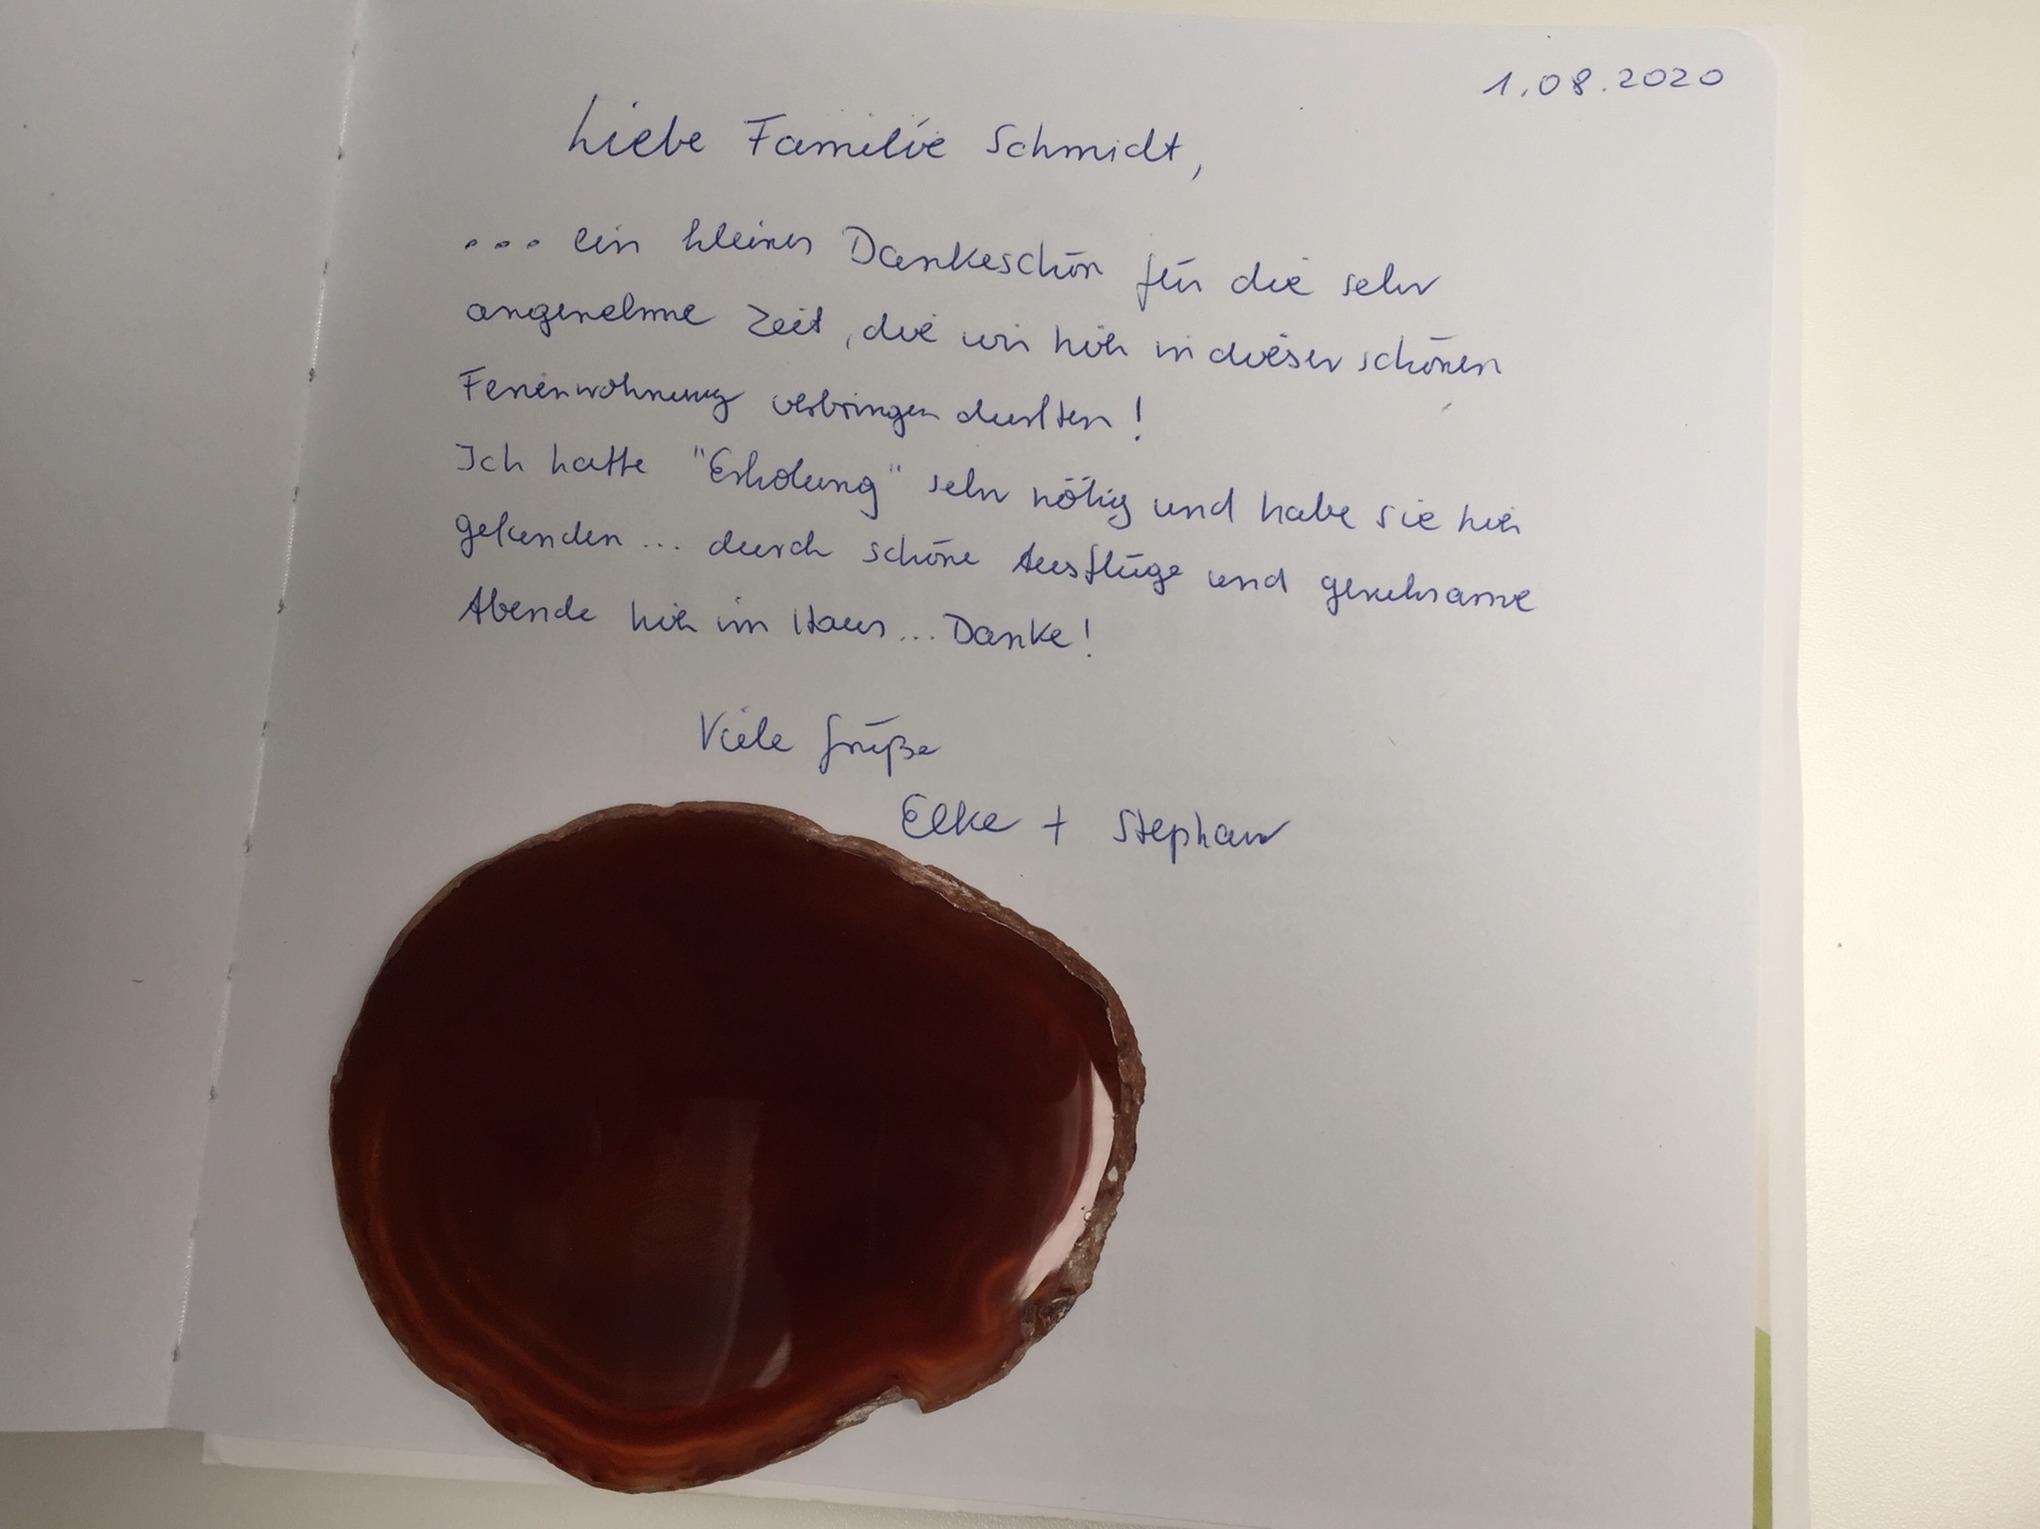 1.08.2020
Liebe Familie Schmidt,
... ein kleines Dankeschön für die sehr
angenehme Zeit, die wir hier in dieser schönen
Ferienwohnung verbringen durften!
Ich hatte "Erholung" sehr nötig und habe sie hier
gefunden... durch schöne Ausflüge und geruhsame
Abende hier im Haus... Danke!
Viele Grüße
Elke + Stephan